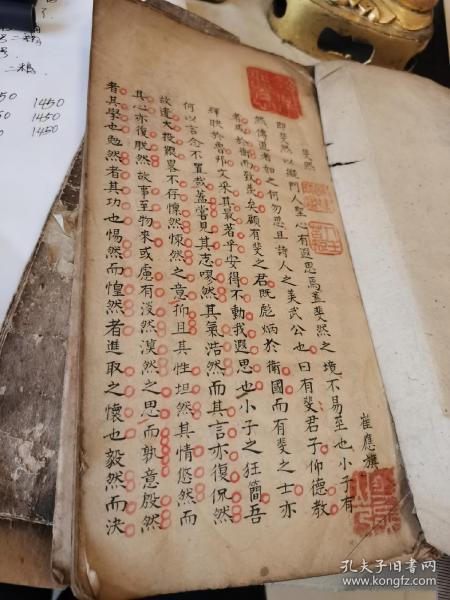 斐然
崔應旗
即斐然以擬門人聖心有遐思焉蓋斐然之境不易至也小子有
然傳道者如之何勿思且詩人之美武公也曰有斐君子仰德教
者馬於衛而致美矣顧有斐之君既彪炳於衛國而有斐之士亦
輝映於魯邦文采其最著乎安得不動我遐思也小子之狂簡吾
何以言念不置哉蓋嘗見其志嘐然其氣浩然而其言亦復侃然
故遺大投艱畧不停懍然悚然之意抑且其性坦然其情悠然而
其心亦復脫然故事至物來或慮有淡然漠然之思而孰意殷然
者其學也勉然者其功也惕然而惶然者進取之懷也毅然而決
1450
1450
1450
孔夫子旧书网
www.kongfz.com